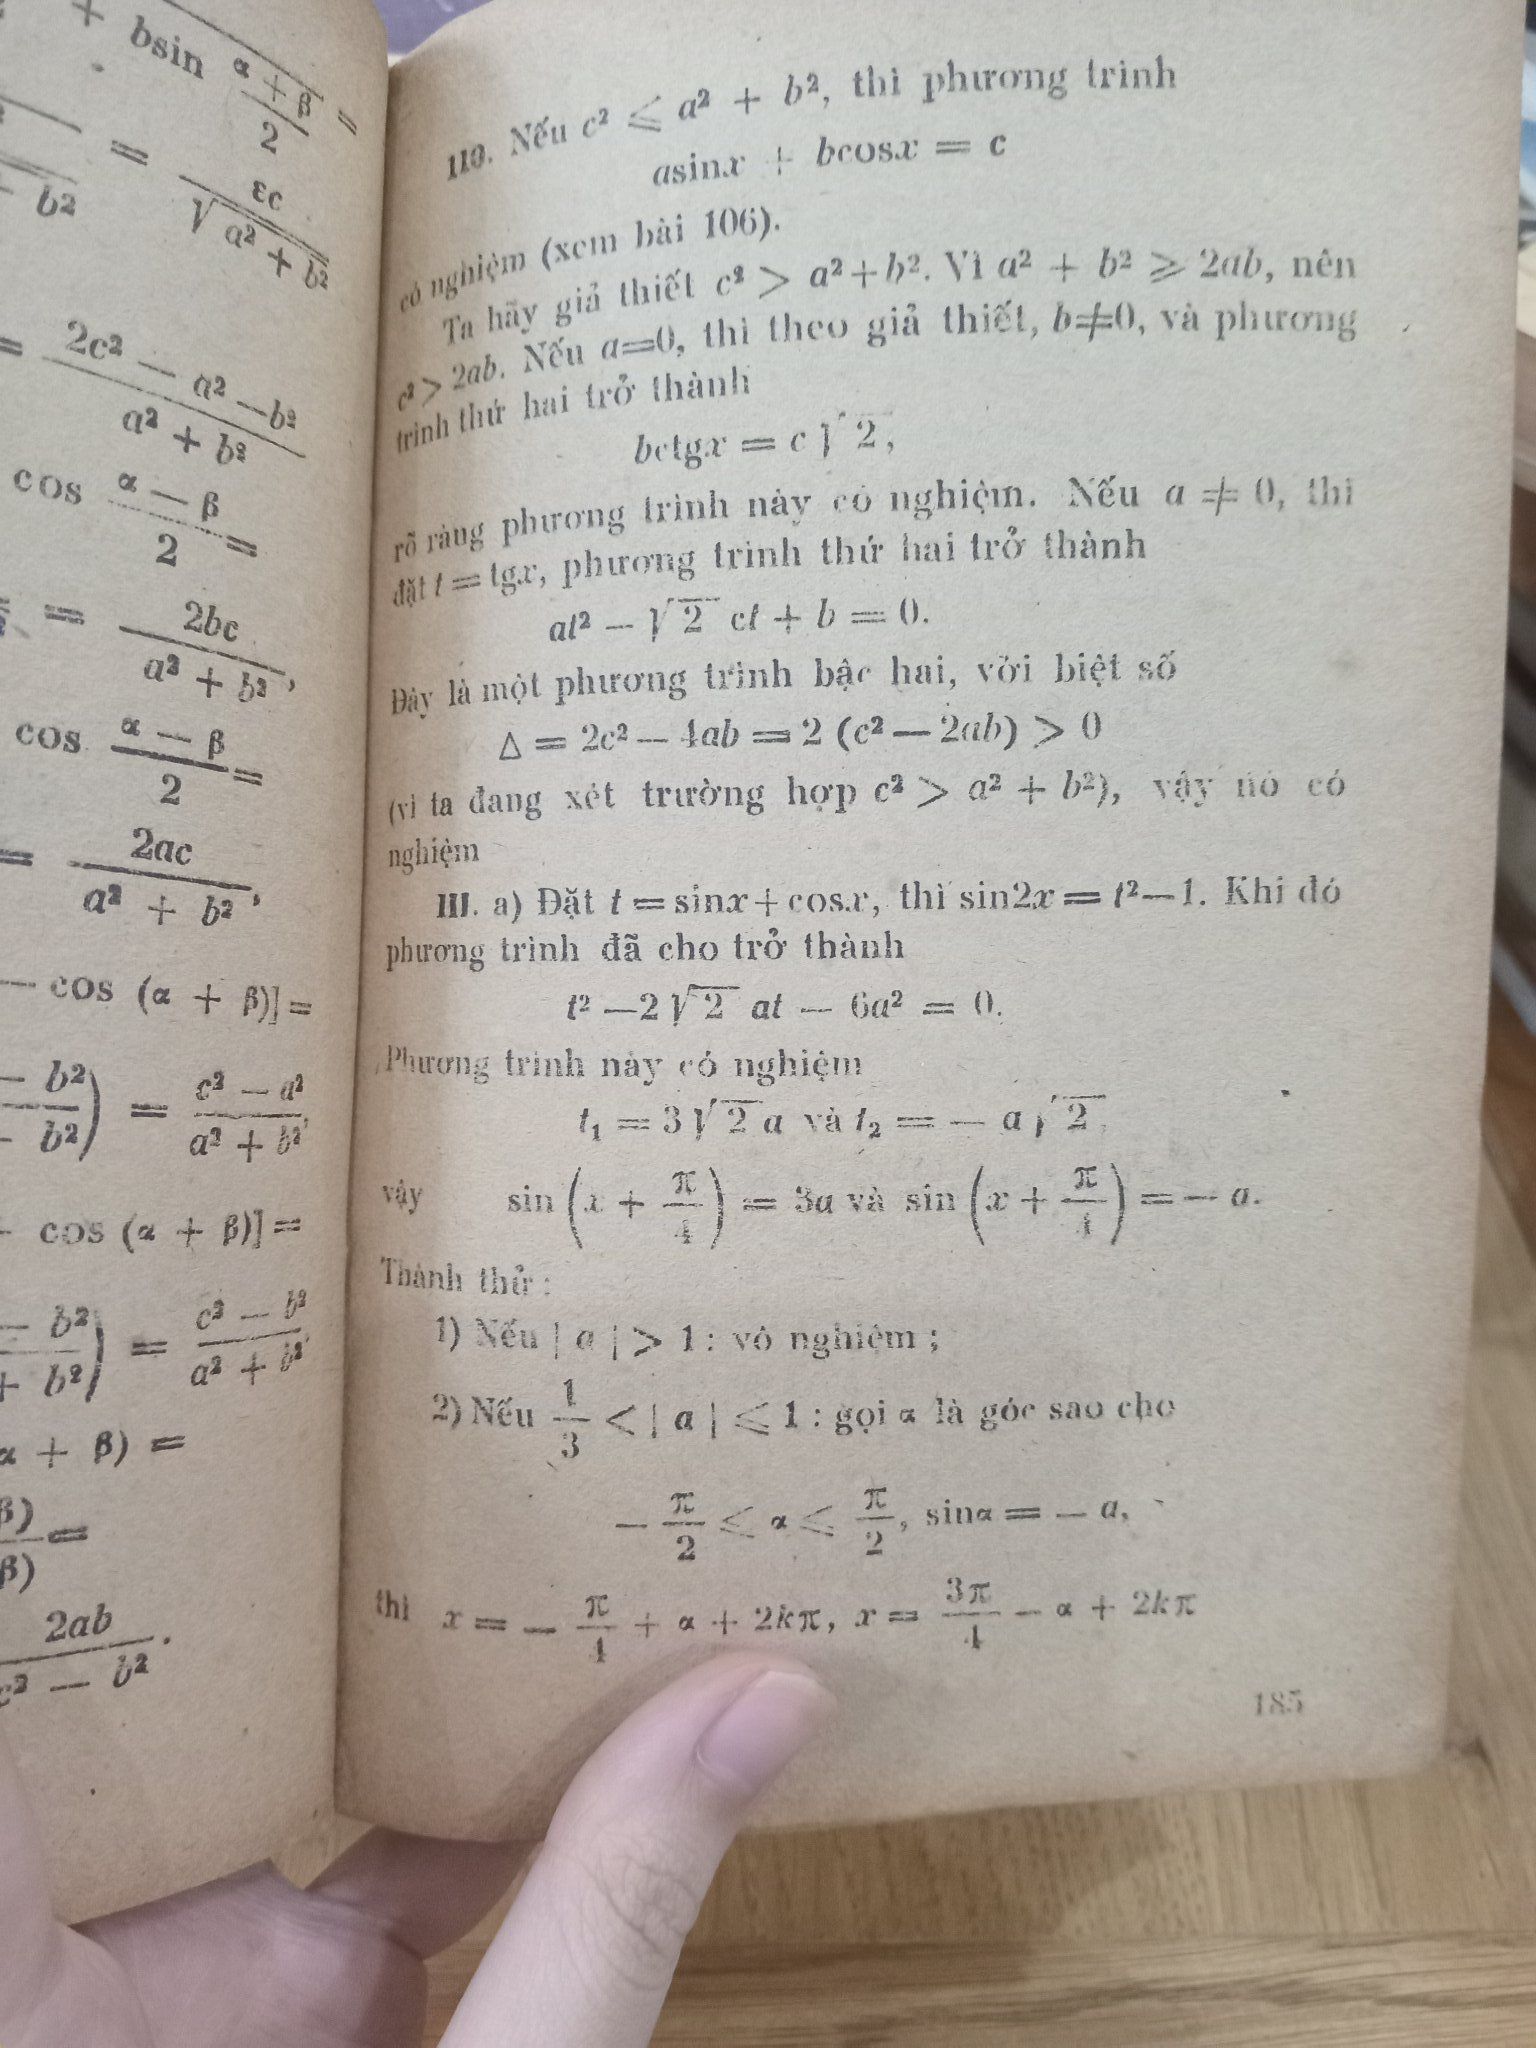 bsin α + β / 2 =
= εc / √a² + b²
b²
= 2c² — a² — b² / a² + b²
cos α — β / 2 =
= 2bc / a² + b² ,
cos α — β / 2 =
= 2ac / a² + b² ,
— cos (α + β)] =
— b² / b² ) = c² — a² / a² + b² ,
+ cos (α + β)] =
— b² / + b² ) = c² — b² / a² + b² ,
α + β) =
β) / β) =
2ab / c² — b² .
110. Nếu c² ⩽ a² + b², thì phương trình
asinx + bcosx = c
có nghiệm (xem bài 106).
Ta hãy giả thiết c² > a² + b². Vì a² + b² ⩾ 2ab, nên
c² > 2ab. Nếu a=0, thì theo giả thiết, b≠0, và phương
trình thứ hai trở thành
bctgx = c √2,
rõ ràng phương trình này có nghiệm. Nếu a ≠ 0, thì
đặt t = tgx, phương trình thứ hai trở thành
at² — √2 ct + b = 0.
Đây là một phương trình bậc hai, với biệt số
Δ = 2c² — 4ab = 2 (c² — 2ab) > 0
(vì ta đang xét trường hợp c² > a² + b²), vậy nó có
nghiệm
III. a) Đặt t = sinx + cosx, thì sin2x = t² — 1. Khi đó
phương trình đã cho trở thành
t² — 2 √2 at — 6a² = 0.
Phương trình này có nghiệm
t₁ = 3 √2 a và t₂ = — a √2,
vậy sin (x + π/4) = 3a và sin (x + π/4) = — a.
Thành thử :
1) Nếu | a | > 1 : vô nghiệm ;
2) Nếu 1/3 < | a | ⩽ 1 : gọi α là góc sao cho
— π/2 ⩽ α ⩽ π/2, sinα = — a,
thì x = — π/4 + α + 2kπ, x = 3π/4 — α + 2kπ
185